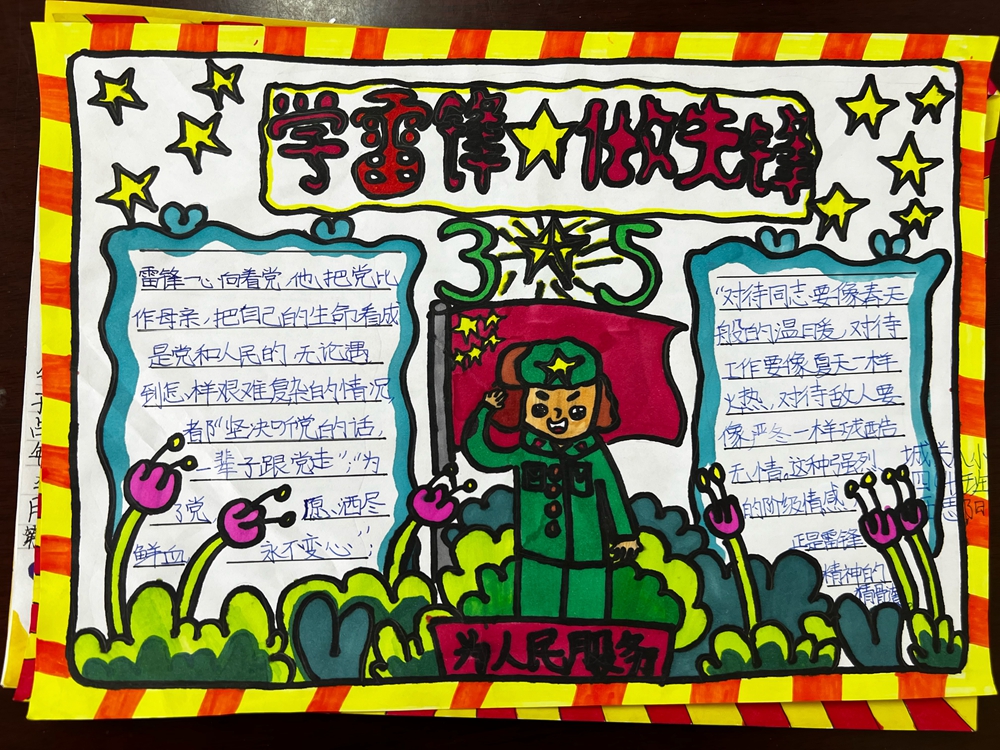 学雷锋做先锋
3 5
雷锋一心向着党,他把党比
作母亲,把自己的生命看成
是党和人民的,无论遇
到怎样艰难复杂的情况
都"坚决听党的话,
一辈子跟党走";"为
了党 愿洒尽
鲜血 永不变心";
"对待同志要像春天
般的温暖,对待
工作要像夏天一样
火热,对待敌人要
像严冬一样残酷
无情。这种强烈
的阶级情感
正是雷锋
精神的
精髓
为人民服务